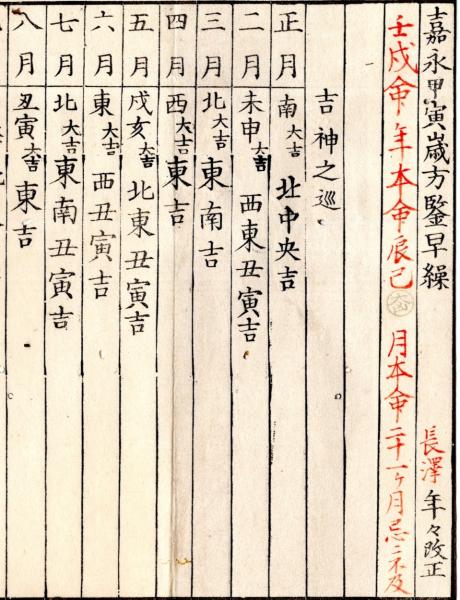 嘉永甲寅歳方鑒早繰
長澤年々改正
壬戌命年本命辰巳 月本命二十一ヶ月忌ニ不及
吉神之巡
正月 南大吉 北中央吉
二月 未申大吉 西東丑寅吉
三月 北大吉 東南吉
四月 西大吉 東吉
五月 戌亥大吉 北東丑寅吉
六月 東大吉 西丑寅吉
七月 北大吉 東南丑寅吉
八月 丑寅大吉 東吉